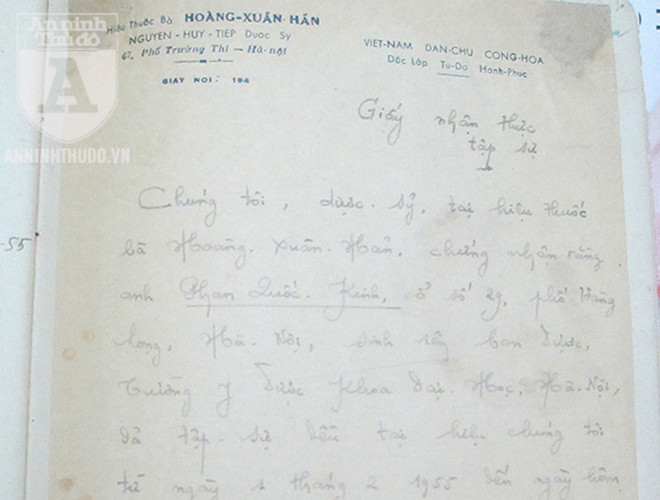 An ninh
Thủ đô
A
ANNINHTHUDO.VN
Hiệu Thuốc Bà HOÀNG-XUÂN-HÃN
NGUYEN-HUY-TIEP Duoc Sy
67, Phố Trường Thi – Hà-nội
GIAY NOI: 194
VIET-NAM DAN-CHU CONG-HOA
Dôc Lâp Tu-Do Hanh-Phuc
Giấy nhận thực
tập sự
-55
Chúng tôi, dược-sỹ, tại hiệu thuốc
bà Hoàng-Xuân-Hãn, chứng nhận rằng
anh Phan Quốc-Kinh, ở số 29, phố Hàng
lọng, Hà-Nội, sinh viên ban Dược,
Trường Y Dược Khoa Đại-Học, Hà-Nội,
đã tập-sự đều tại hiệu chúng tôi
từ ngày 1 tháng 2 1955 đến ngày hôm